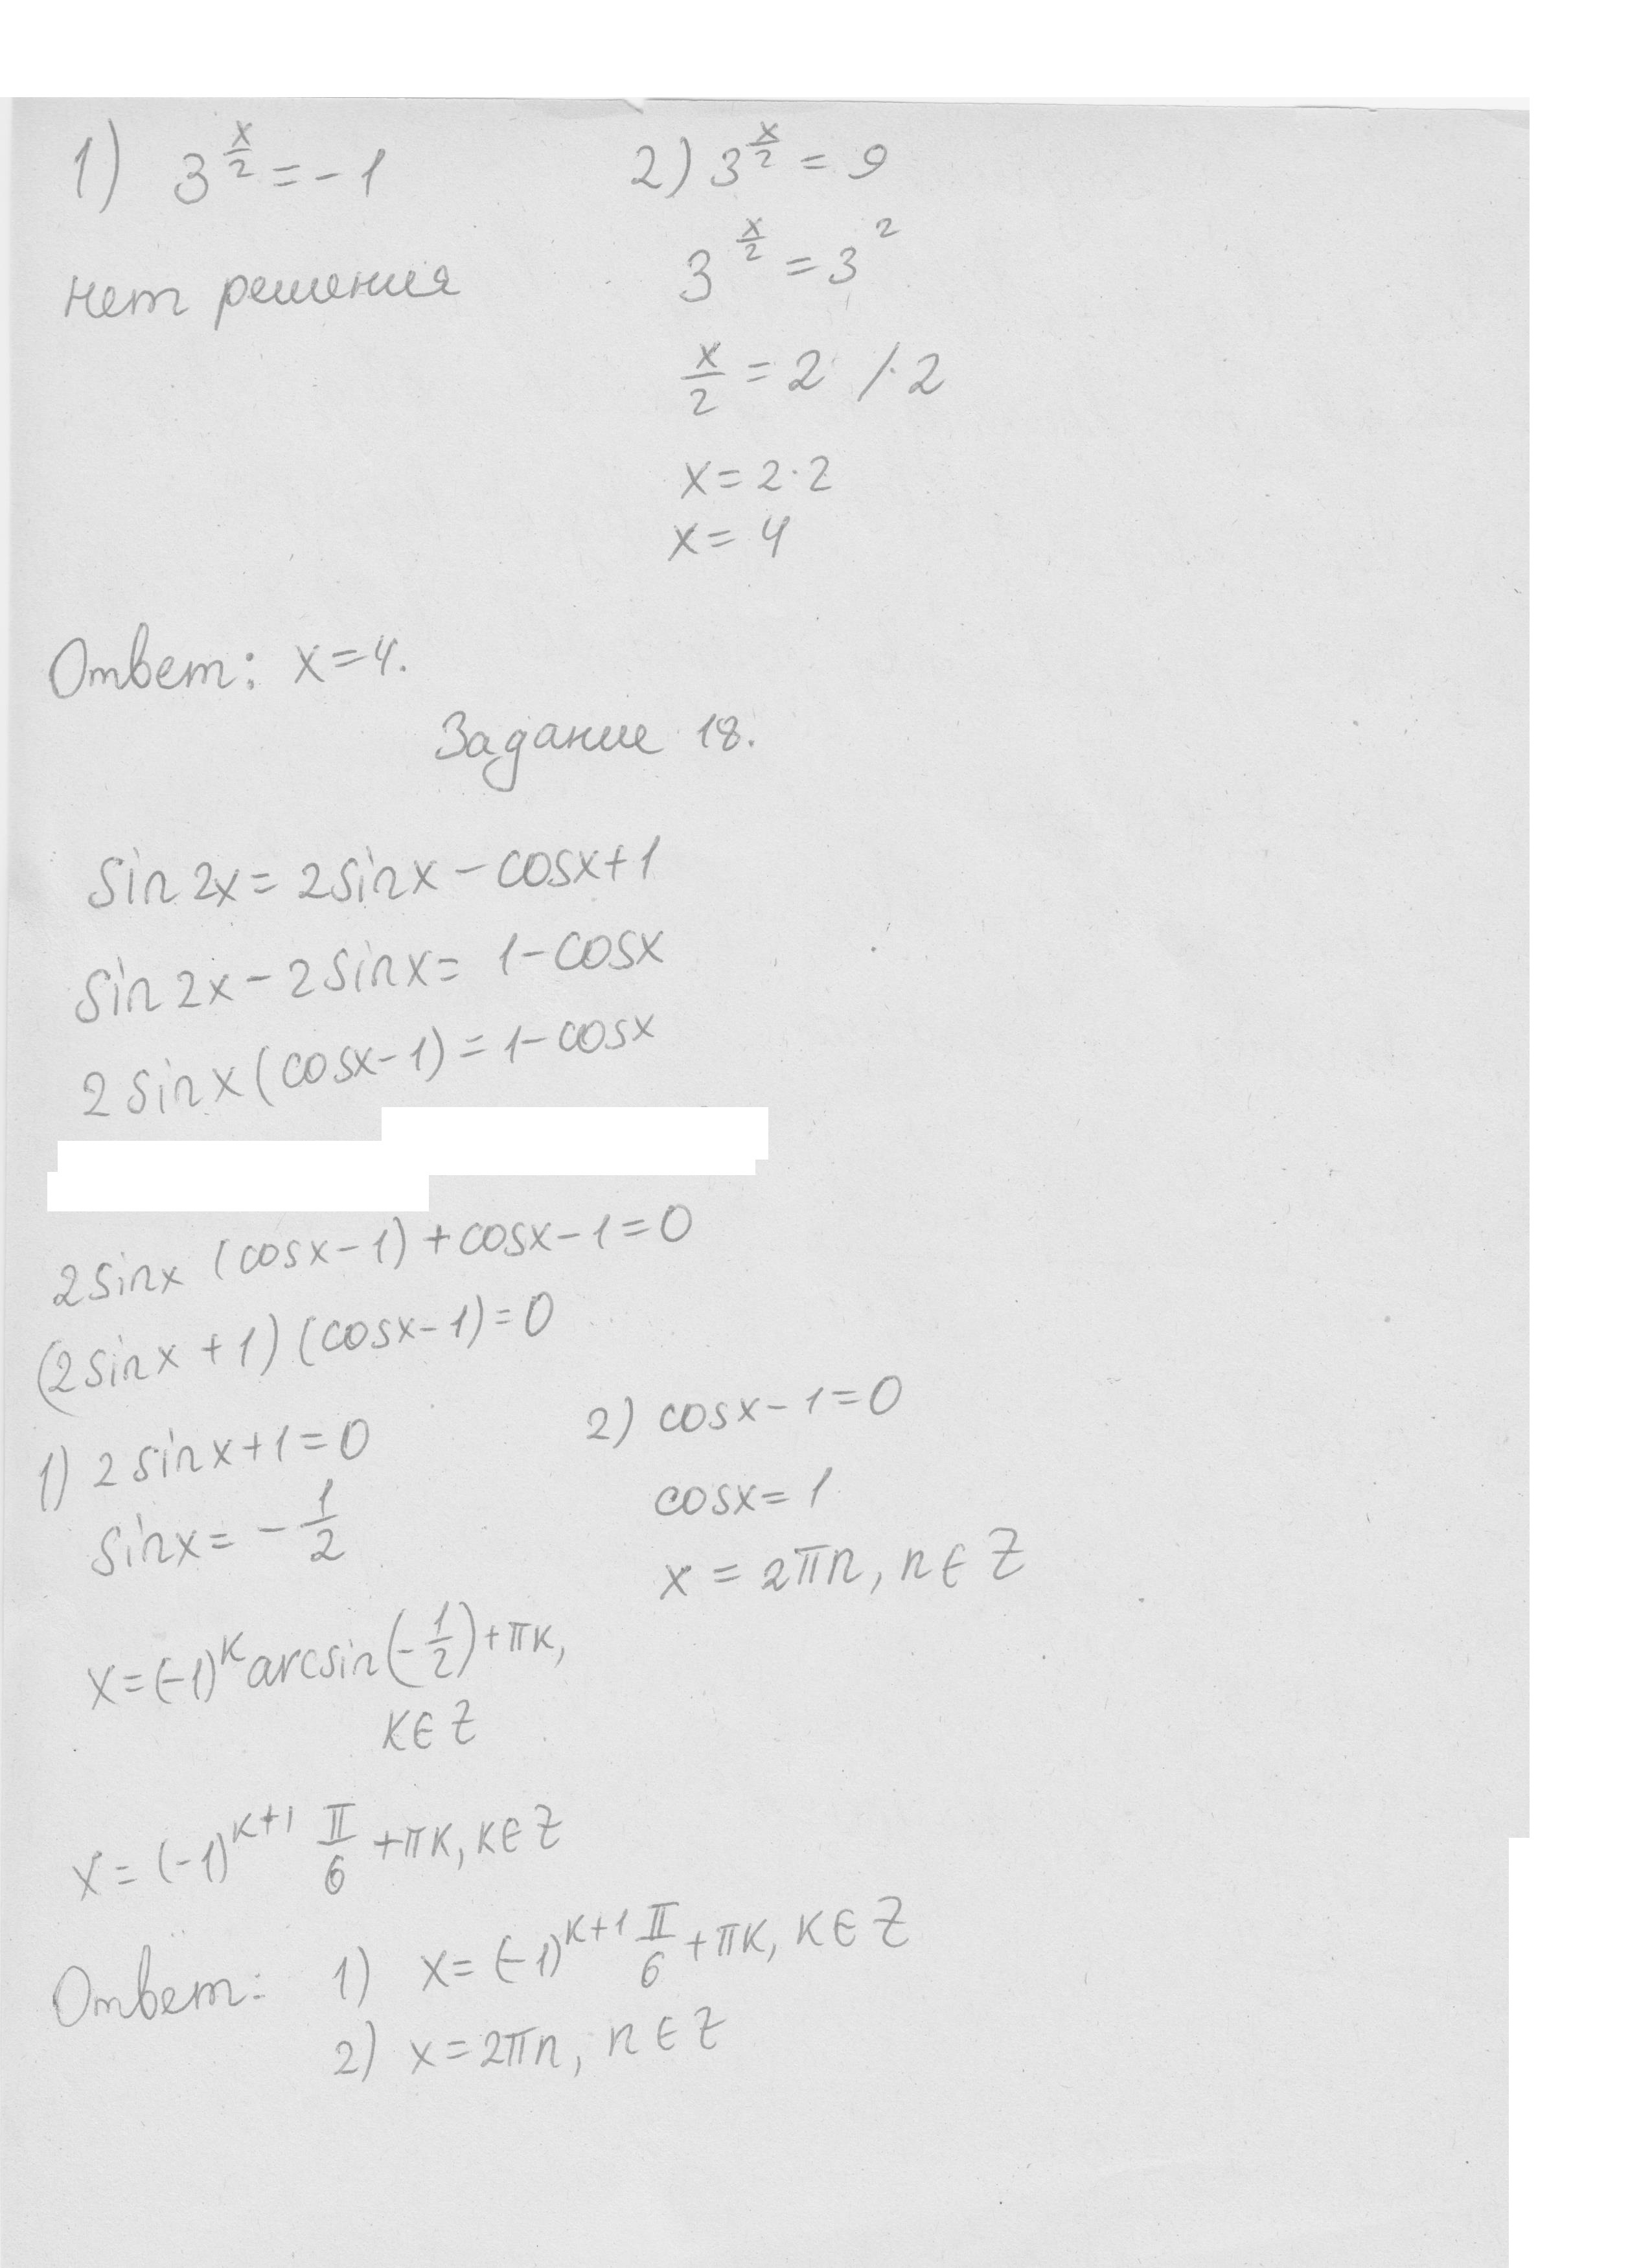 1) 3^(x/2) = -1
нет решения
2) 3^(x/2) = 9
3^(x/2) = 3^2
x/2 = 2 /·2
x = 2·2
x = 4
Ответ: x = 4.
Задание 18.
sin 2x = 2 sin x - cos x + 1
sin 2x - 2 sin x = 1 - cos x
2 sin x (cos x - 1) = 1 - cos x
2 sin x (cos x - 1) + cos x - 1 = 0
(2 sin x + 1) (cos x - 1) = 0
1) 2 sin x + 1 = 0
sin x = - 1/2
x = (-1)^k arcsin(-1/2) + πk,
k ∈ Z
x = (-1)^(k+1) π/6 + πk, k ∈ Z
2) cos x - 1 = 0
cos x = 1
x = 2πn, n ∈ Z
Ответ: 1) x = (-1)^(k+1) π/6 + πk, k ∈ Z
2) x = 2πn, n ∈ Z